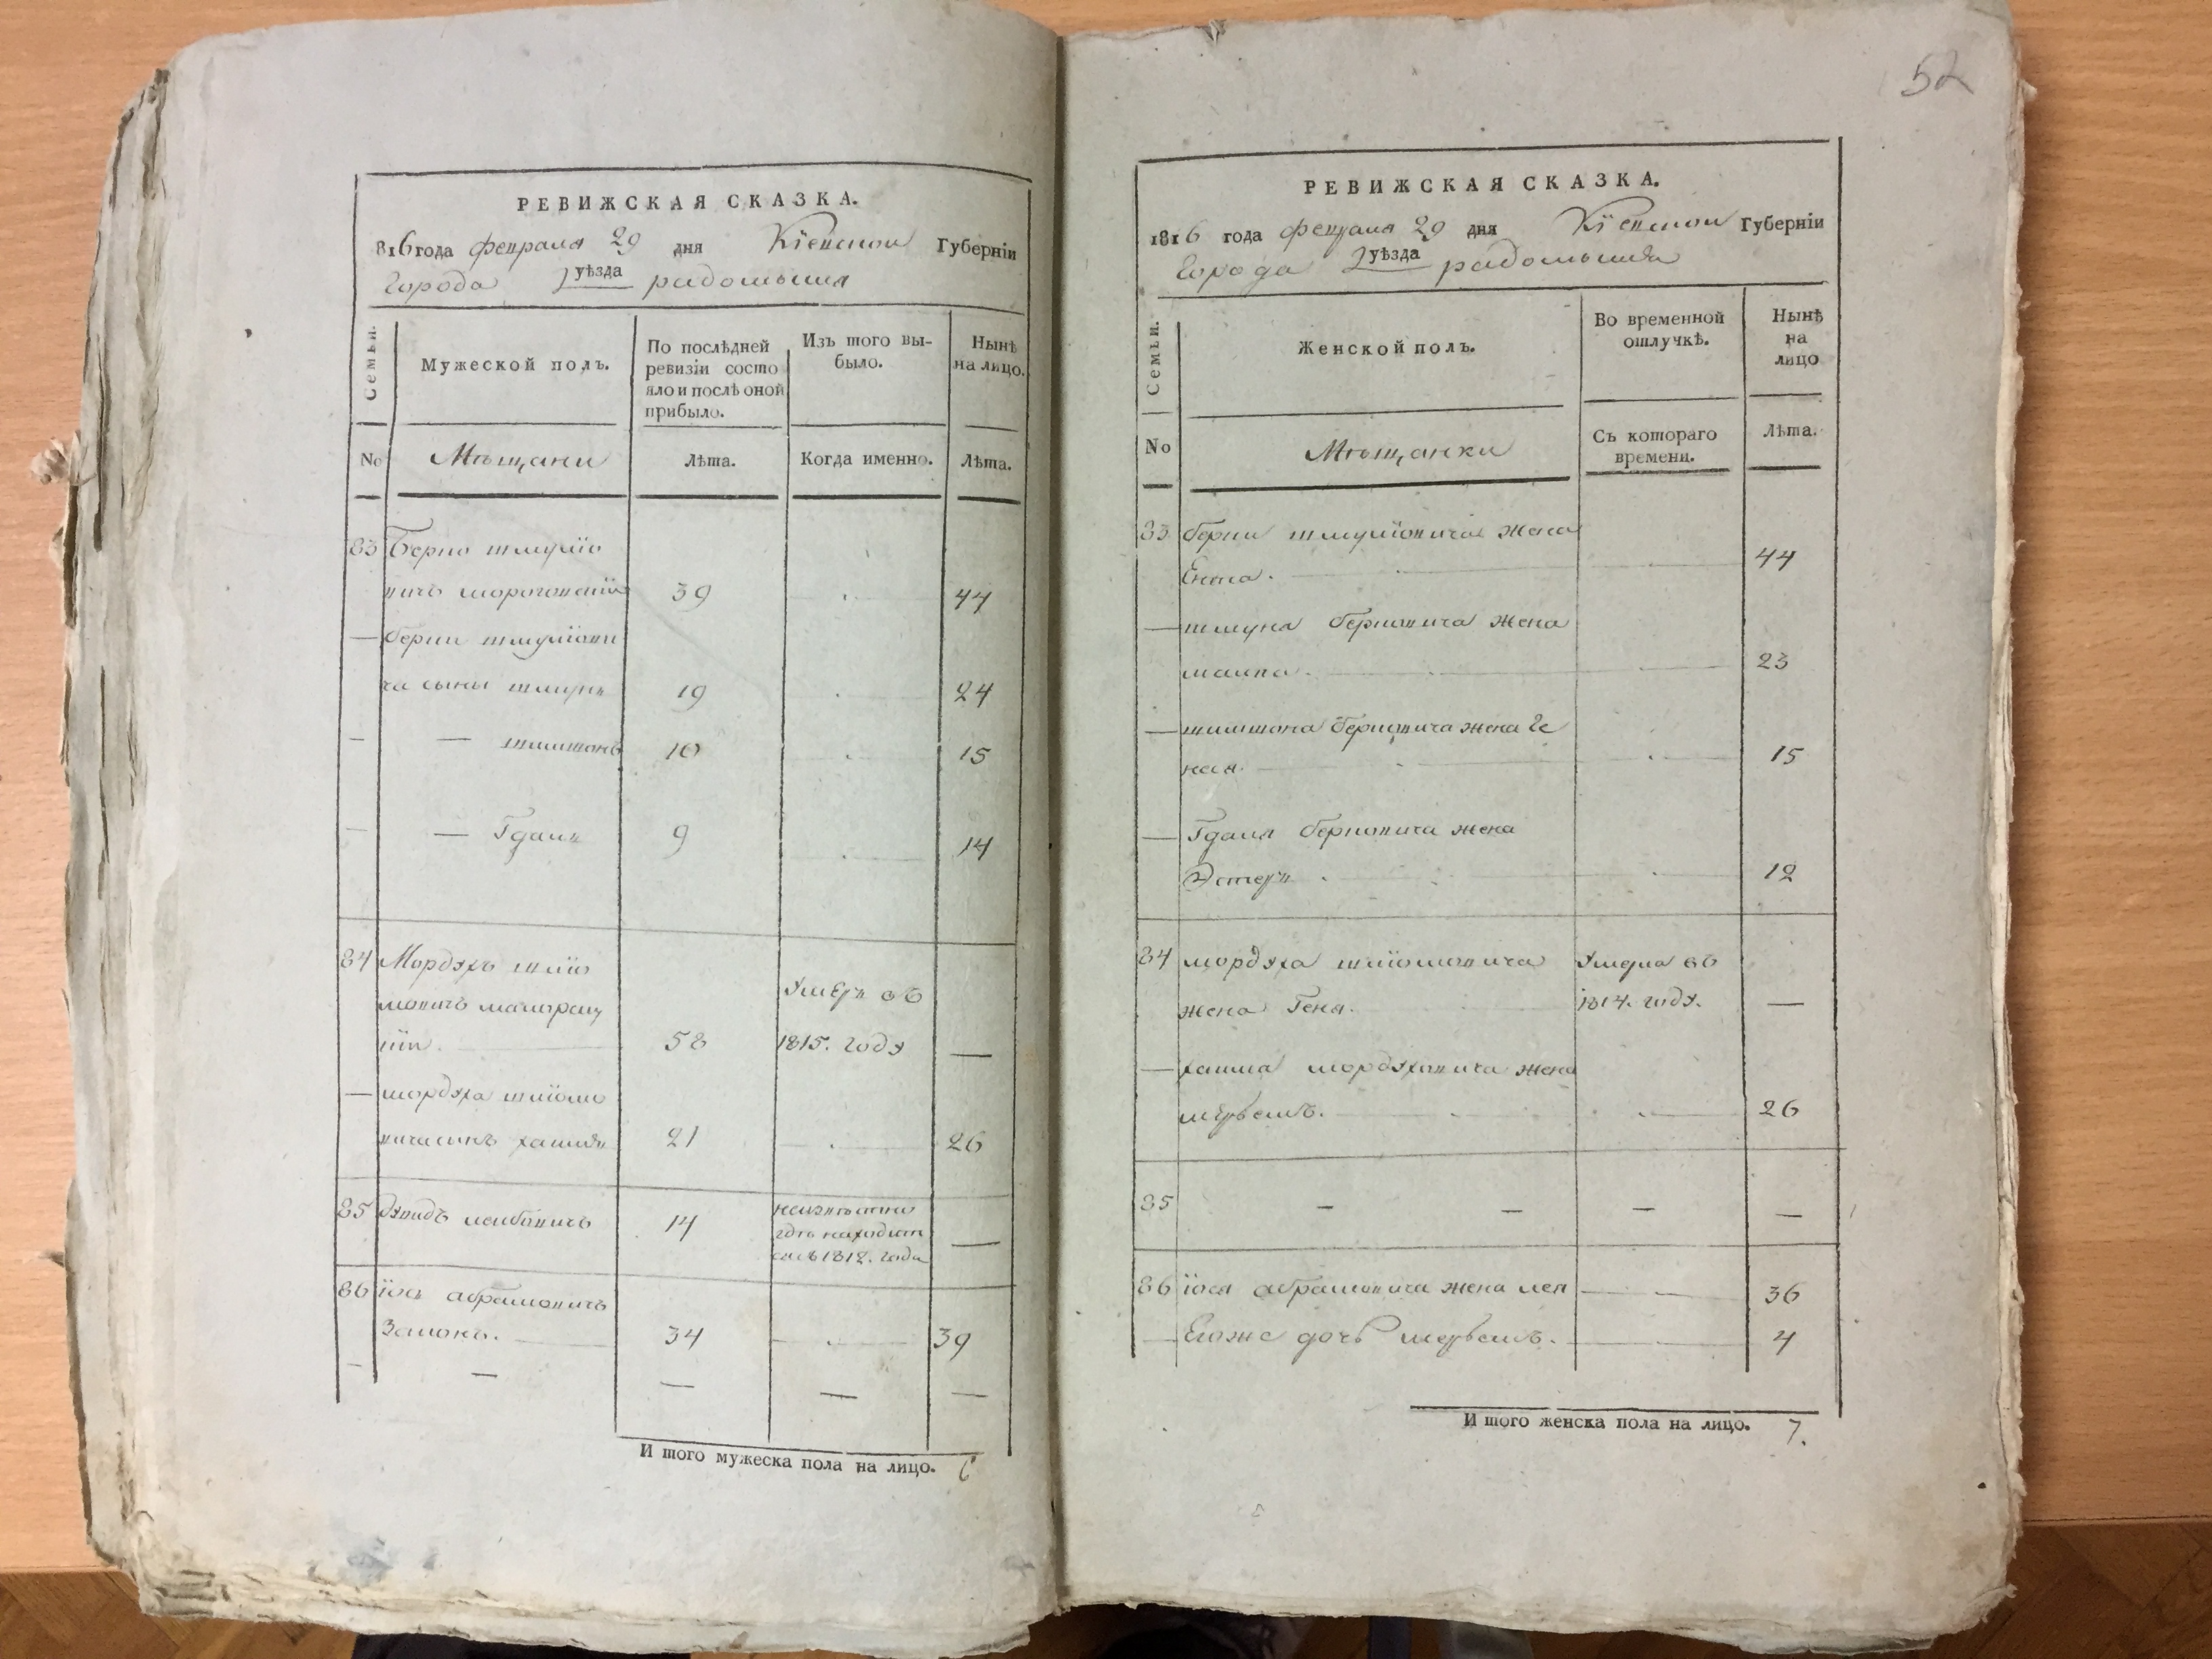 52
РЕВИЖСКАЯ СКАЗКА.
816 года февраля 29 дня Кіевской Губерніи
Города уѣзда радомысля
Семьи.
Мужеской полъ.
По послѣдней
ревизіи состо
яло и послѣ оной
прибыло.
Изъ того вы-
было.
Нынѣ
на лицо.
No
Мѣщани
Лѣта.
Когда именно.
Лѣта.
83 Берко шмуліо
вичь 39 44
— берки шмуліови
ча сыны шмуль 19 24
— — шимшонъ 10 15
— — Гдаль 9 14
84 Мордухъ шліо
мовичъ
58 Умеръ въ 1815. году —
— мордуха шліомо
вича сынъ хаимъ 21 26
85 Давидъ лейбовичъ 14 неизвѣстно
гдѣ находит
ся съ 1812. года —
86 іось абрамовичъ
34 39
— — — — —
И того мужеска пола на лицо. 6
РЕВИЖСКАЯ СКАЗКА.
1816 года февраля 29 дня Кіевской Губерніи
Города уѣзда радомысля
Семьи.
Женской полъ.
Во временной
отлучкѣ.
Нынѣ
на
лицо
No
Мѣщанки
Съ котораго
времени.
Лѣта.
83 берки шмуліовича жена
44
— шмуля берковича жена
23
— шимшона берковича жена
15
— Гдаля берковича жена
Эстеръ 12
84 мордуха шліомовича Умерла въ
жена Геня. 1814. году. —
— хаима мордуховича жена
26
85 — — — —
86 іося абрамовича жена лея 36
— Егоже дочь 4
И того женска пола на лицо. 7.